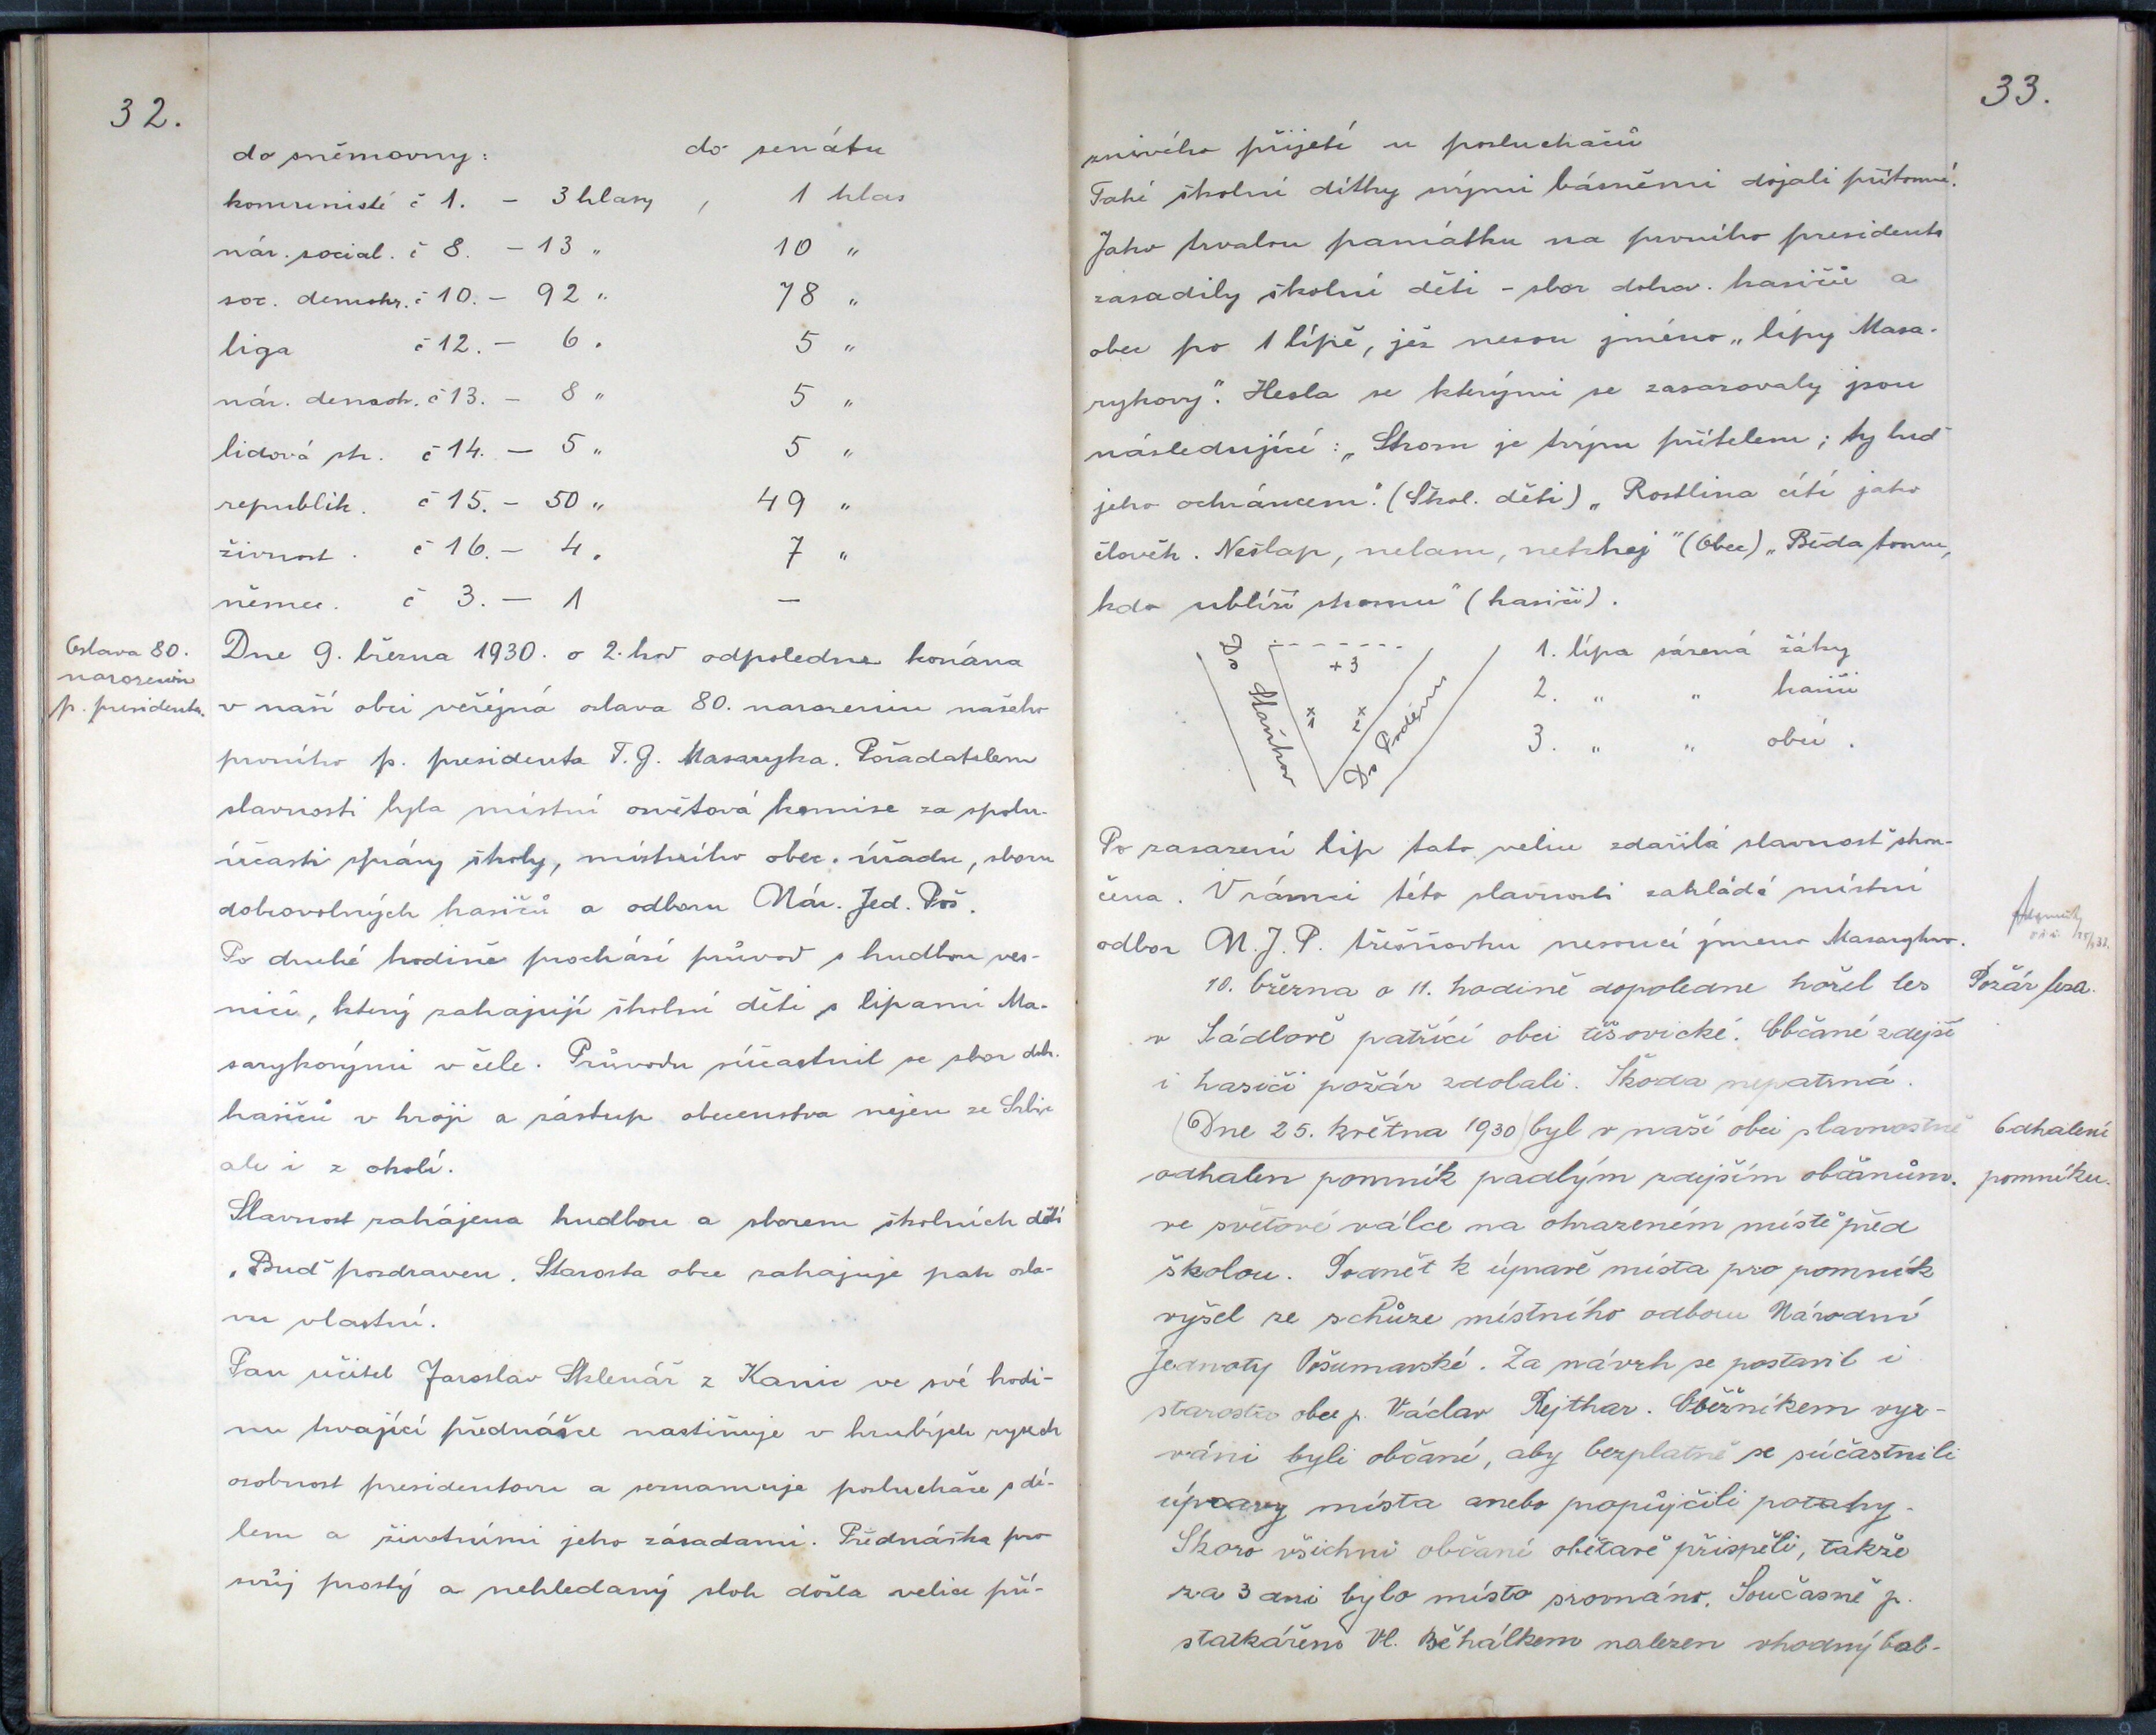 32.
do sněmovny: do senátu
komunisté č 1. - 3 hlasy, 1 hlas
nár. social. č 8. - 13 " 10 "
soc. demokr. č 10. - 92 " 78 "
liga č 12. - 6 " 5 "
nár. demokr. č 13. - 8 " 5 "
lidová str. č 14. - 5 " 5 "
republik. č 15. - 50 " 49 "
živnost. č 16. - 4 " 7 "
němec. č 3. - 1 -
Oslava 80.
narozenin
p. presidenta.
Dne 9. března 1930. o 2. hod odpoledne konána
v naší obci veřejná oslava 80. narozenin našeho
prvního p. presidenta T. G. Masaryka. Pořadatelem
slavnosti byla místní osvětová komise za spolu-
účasti správy školy, místního obec. úřadu, sboru
dobrovolných hasičů a odboru Nár. Jed. Poš.
Po druhé hodině prochází průvod s hudbou ves-
nicí, který zahajují školní děti s lipami Ma-
sarykovými v čele. Průvodu súčastnil se sbor dobr.
hasičů v kroji a zástup obecenstva nejen ze Srbic
ale i z okolí.
Slavnost zahájena hudbou a sborem školních dětí
„Buď pozdraven. Starosta obce zahajuje pak osla-
vu vlastní.
Pan učitel Jaroslav Sklenář z Kanic ve své hodi-
nu trvající přednášce nastiňuje v hrubých rysech
osobnost presidentovu a seznamuje posluchače s dí-
lem a životními jeho zásadami. Přednáška pro
svůj prostý a nehledaný sloh došla velice pří-
33.
znivého přijetí u posluchačů
Také školní dítky svými básněmi dojali přítomné.
Jako trvalou památku na prvního presidenta
zasadily školní děti - sbor dobrov. hasičů a
obec po 1 lípě, jež nesou jméno „lípy Masa-
rykovy". Hesla se kterými se zasazovaly jsou
následující: „Strom je tvým přítelem; ty buď
jeho ochráncem". (Škol. děti) „Rostlina cítí jako
člověk. Nešlap, nelam, netrhej" (Obec) „Běda tomu,
kdo ublíží stromu" (hasiči).
Do Staňkov
+3
x 1
x 2
Do
1. lípa sázená žáky
2. " " hasiči
3. " " obcí.
Po zasazení lip tato velice zdařilá slavnost skon-
čena. V rámci této slavnosti zakládá místní
odbor N. J. P. třešňovku nesoucí jméno Masarykovo.
10. března o 11. hodině dopoledne hořel les
Požár lesa.
v Sádlově patřící obci tišovické. Občané zdejší
i hasiči požár zdolali. Škoda nepatrná.
(Dne 25. května 1930) byl v naší obci slavnostně
Odhalení
odhalen pomník padlým zdejším občanům
pomníku.
ve světové válce na ohrazeném místě před
školou. Podnět k úpravě místa pro pomník
vyšel ze schůze místního odboru Národní
Jednoty Pošumavské. Za návrh se postavil i
starosta obce p. Václav Rejthar. Oběžníkem vyz-
váni byli občané, aby bezplatně se súčastnili
úpravy místa anebo propůjčili potahy.
Skoro všichni občané obětavě přispěli, takže
za 3 dni bylo místo srovnáno. Současně p.
statkářem Vl. Běhálkem nalezen vhodný bal-